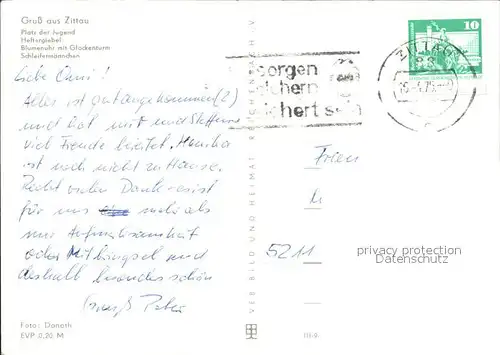 Gruß aus Zittau
Platz der Jugend
Heftergiebel
Blumenuhr mit Glockenturm
Schleifermännchen
Liebe
Alles ist gut angekommen (2)
und hat mir und
viel Freude bereitet. Monika
ist noch nicht zu Hause.
Recht vielen Dank es ist
für uns mehr als
nur Aufmerksamkeit
oder Mitbringsel und
deshalb besonders schön
Foto: Donath
EVP 0,20 M
VEB BILD UND HEIMAT REICHENBACH
10
ZITTAU
88
sorgen
sichern
sichert sein
5211
privacy protection
Datenschutz